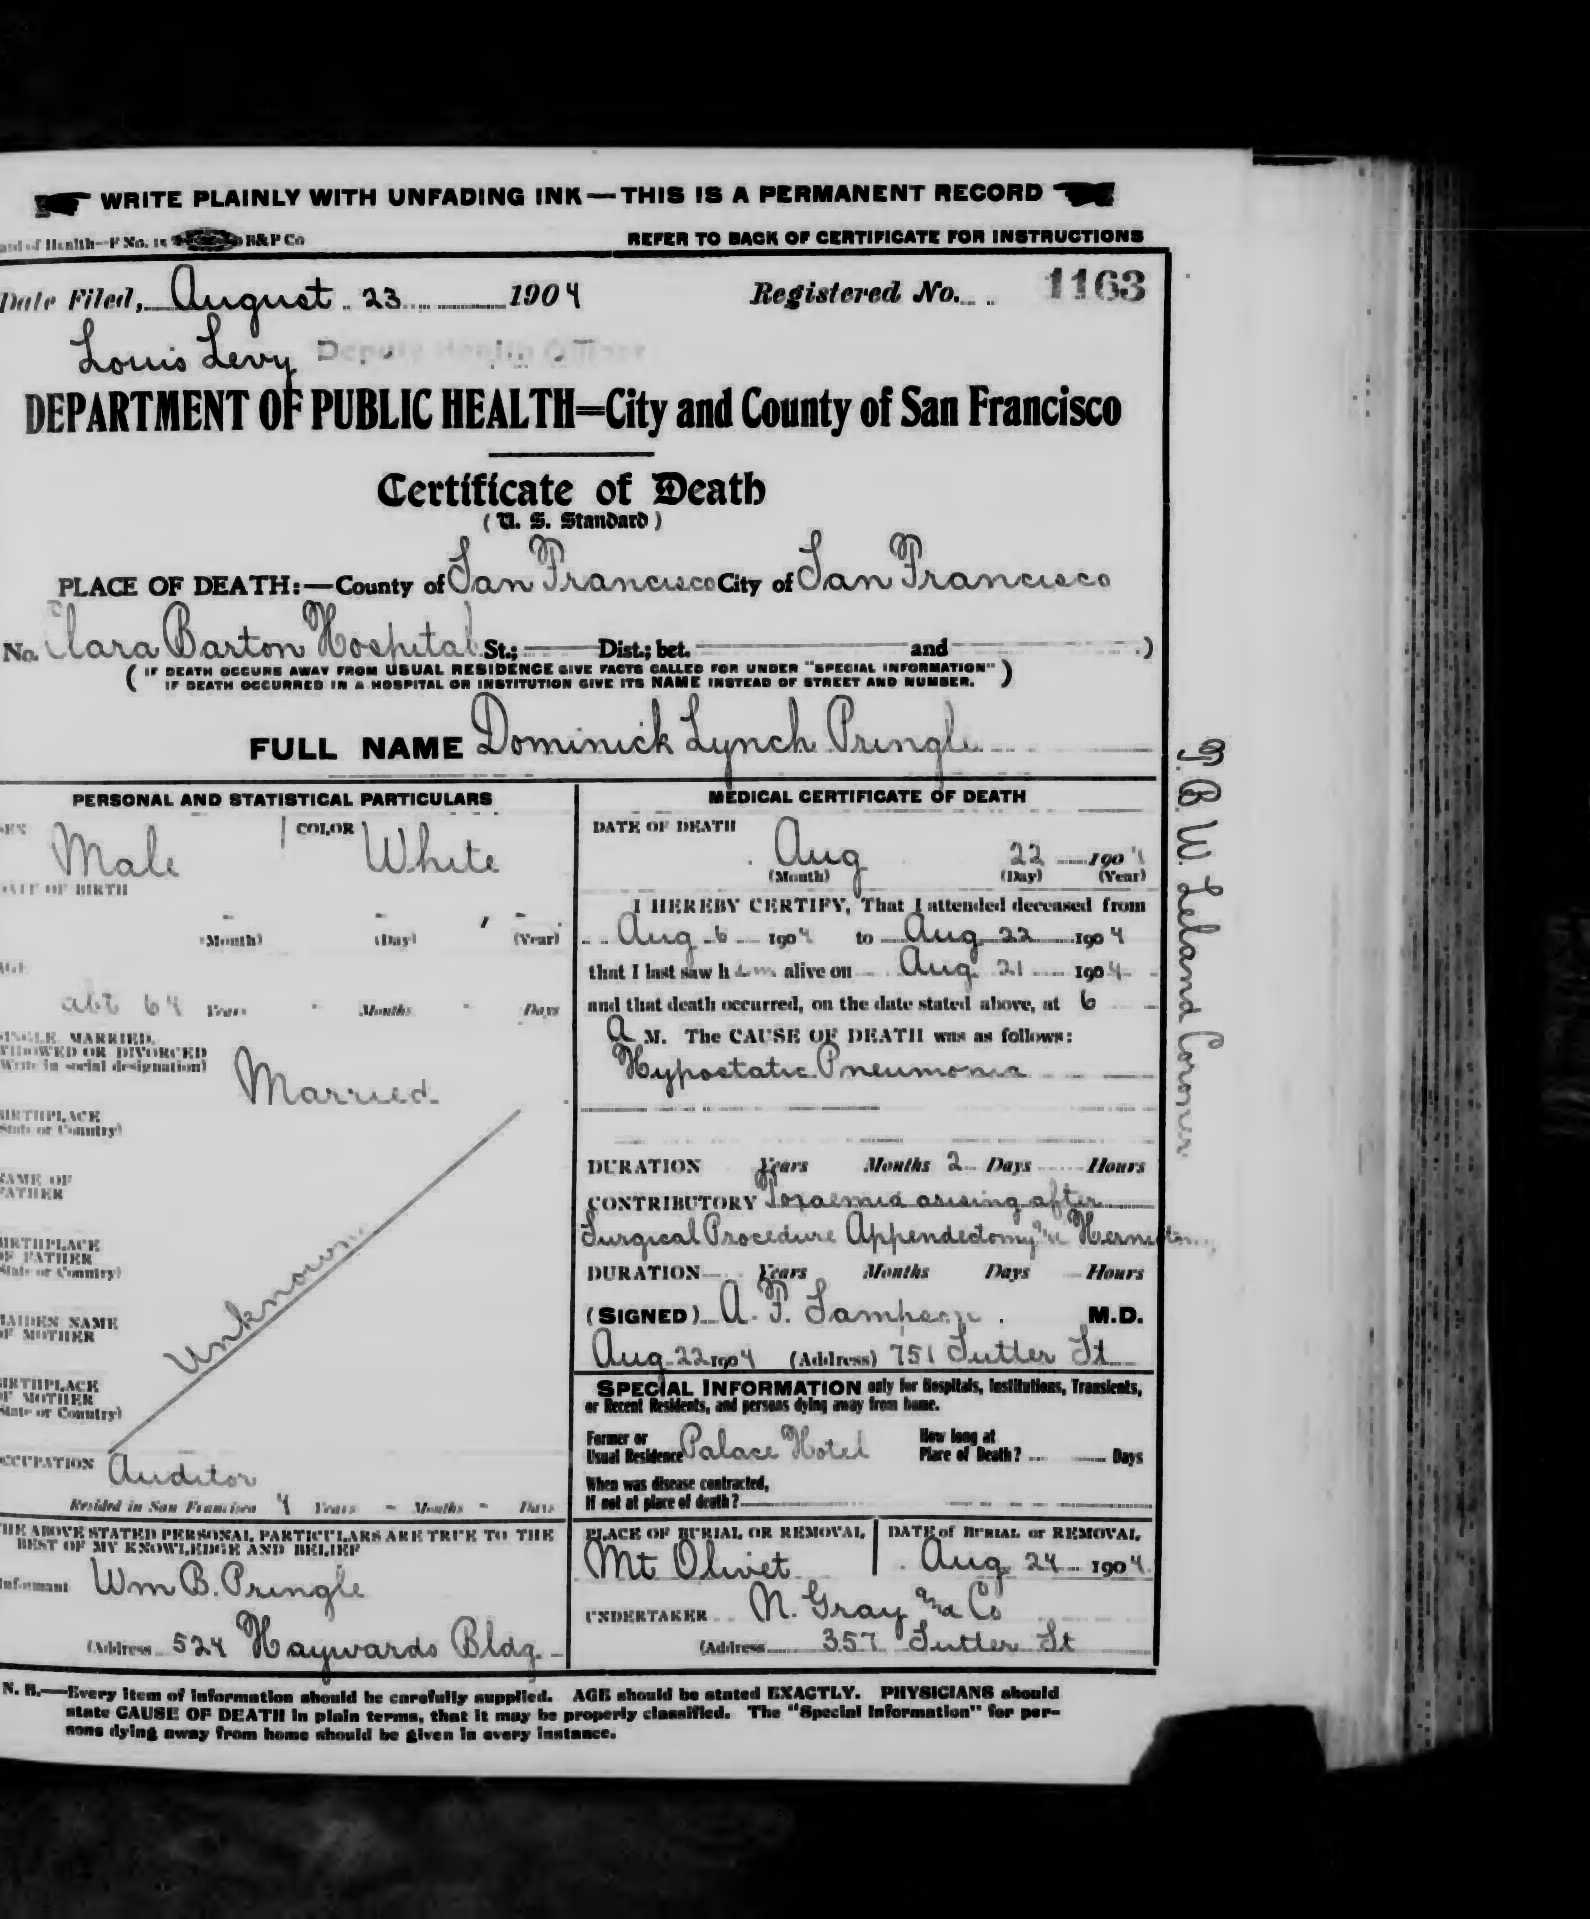 WRITE PLAINLY WITH UNFADING INK—THIS IS A PERMANENT RECORD
of Health—F No. 15 B&P Co REFER TO BACK OF CERTIFICATE FOR INSTRUCTIONS
Date Filed, August 23 1904 Registered No. 1163
Louis Levy Deputy Health Officer
DEPARTMENT OF PUBLIC HEALTH=City and County of San Francisco
Certificate of Death
(U. S. Standard)
PLACE OF DEATH:—County of San Francisco City of San Francisco
No. Clara Barton Hospital St.; Dist.; bet. and )
( IF DEATH OCCURS AWAY FROM USUAL RESIDENCE GIVE FACTS CALLED FOR UNDER "SPECIAL INFORMATION" )
IF DEATH OCCURRED IN A HOSPITAL OR INSTITUTION GIVE ITS NAME INSTEAD OF STREET AND NUMBER.
FULL NAME Dominick Lynch Pringle
PERSONAL AND STATISTICAL PARTICULARS
SEX Male COLOR White
DATE OF BIRTH
- - , -
(Month) (Day) (Year)
AGE
abt 64 Years - Months - Days
SINGLE, MARRIED,
WIDOWED OR DIVORCED
(Write in social designation)
Married
BIRTHPLACE
(State or Country)
NAME OF
FATHER
BIRTHPLACE
OF FATHER
(State or Country)
Unknown
MAIDEN NAME
OF MOTHER
BIRTHPLACE
OF MOTHER
(State or Country)
OCCUPATION Auditor
Resided in San Francisco 4 Years - Months - Days
THE ABOVE STATED PERSONAL PARTICULARS ARE TRUE TO THE
BEST OF MY KNOWLEDGE AND BELIEF
Informant Wm B. Pringle
(Address 524 Haywards Bldg.
MEDICAL CERTIFICATE OF DEATH
DATE OF DEATH
Aug 22 1904
(Month) (Day) (Year)
I HEREBY CERTIFY, That I attended deceased from
Aug 6 1904 to Aug 22 1904
that I last saw him alive on Aug 21 1904
and that death occurred, on the date stated above, at 6
A M. The CAUSE OF DEATH was as follows:
Hypostatic Pneumonia
DURATION Years Months 2 Days Hours
CONTRIBUTORY Toxaemia arising after
Surgical Procedure Appendectomy and Herniotomy
DURATION Years Months Days Hours
(SIGNED) A. F. M.D.
Aug 22 1904 (Address) 751 Sutter St
SPECIAL INFORMATION only for Hospitals, Institutions, Transients,
or Recent Residents, and persons dying away from home.
Former or
Usual Residence Palace Hotel
How long at
Place of Death? Days
When was disease contracted,
If not at place of death?
PLACE OF BURIAL OR REMOVAL
Mt Olivet
DATE of BURIAL or REMOVAL
Aug 24 1904
UNDERTAKER N. Gray and Co
(Address 357 Sutter St
N. B.—Every item of information should be carefully supplied. AGE should be stated EXACTLY. PHYSICIANS should
state CAUSE OF DEATH in plain terms, that it may be properly classified. The "Special Information" for per-
sons dying away from home should be given in every instance.
B. W. Leland Coroner